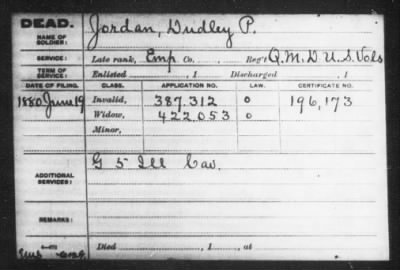 DEAD.
NAME OF SOLDIER: Jordan, Dudley P.
SERVICE: Late rank, Emp Co. Reg't Q.M.D. U.S. Vols
TERM OF SERVICE: Enlisted , 1 Discharged , 1
DATE OF FILING. CLASS. APPLICATION NO. LAW. CERTIFICATE NO.
1880 June 19 Invalid, 387.312 o 196,173
Widow, 422.053 o
Minor,
ADDITIONAL SERVICES: G 5 Ill Cav.
REMARKS:
Died , 1 , at